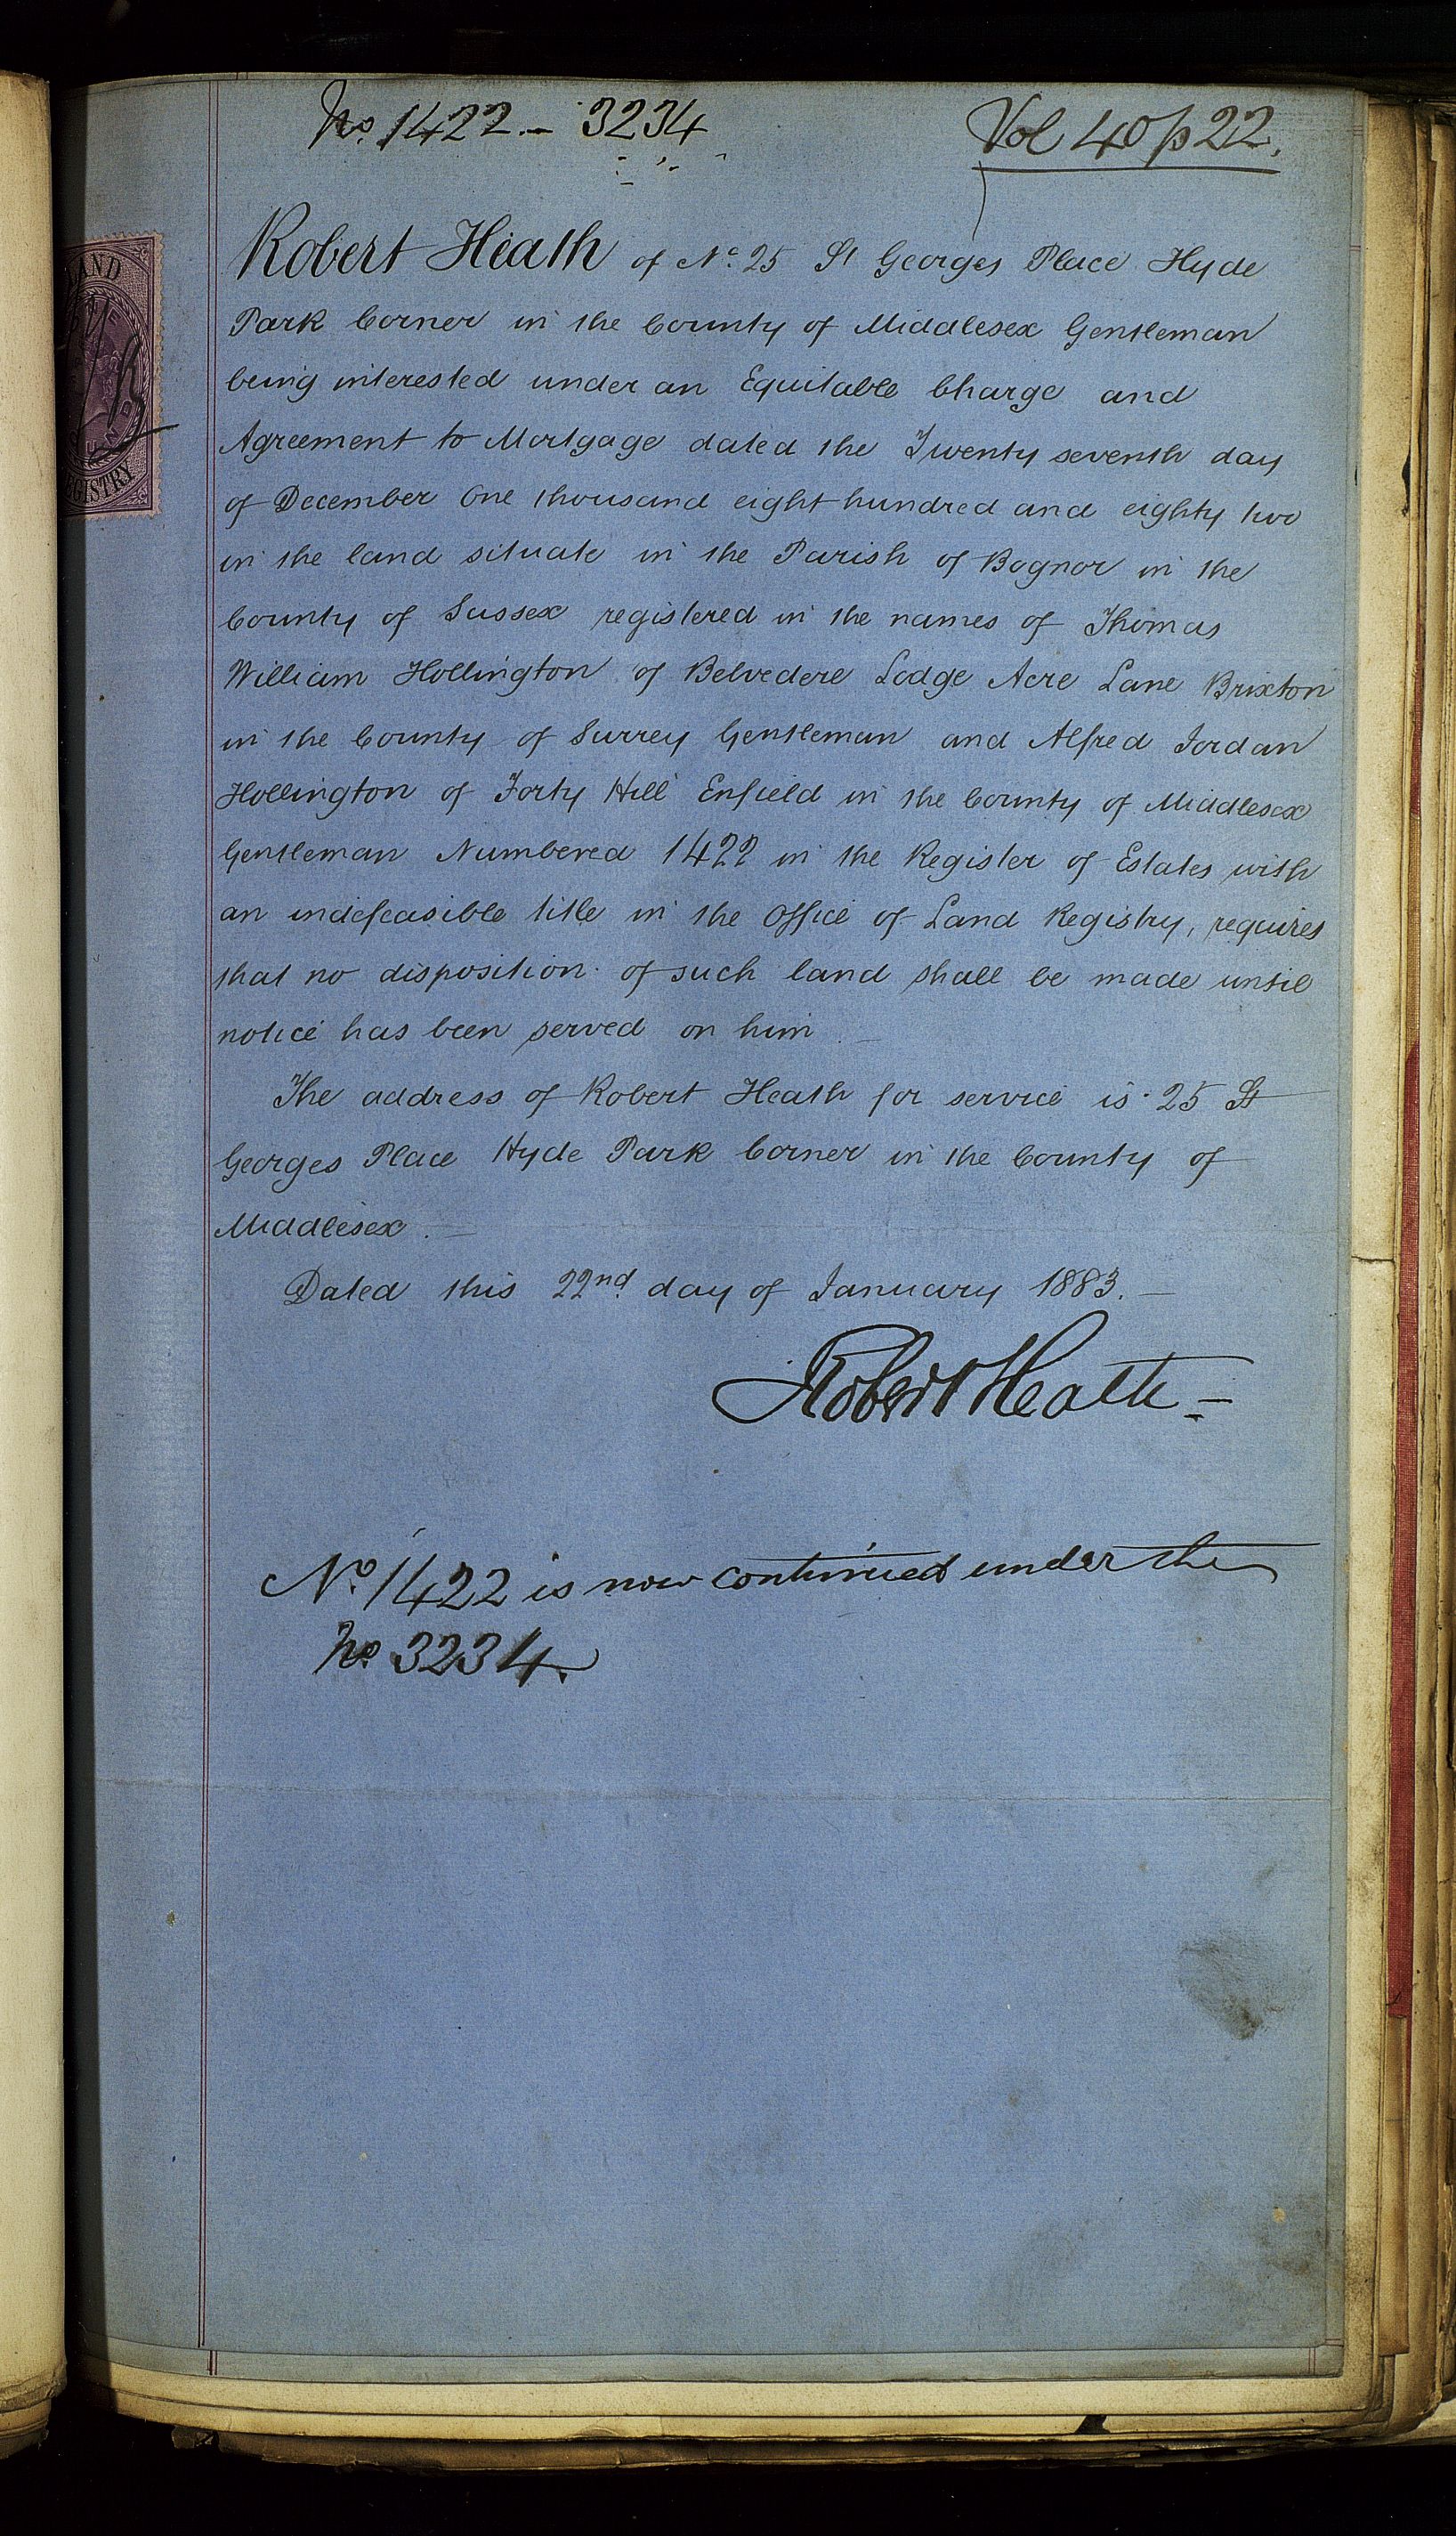 No. 1422 - 3234
Vol 40 p 22.
Robert Heath of No. 25 St Georges Place Hyde
Park Corner in the County of Middlesex Gentleman
being interested under an Equitable Charge and
Agreement to Mortgage dated the Twenty seventh day
of December One thousand eight hundred and eighty two
in the land situate in the Parish of Bognor in the
County of Sussex registered in the names of Thomas
William Hollington of Belvedere Lodge Acre Lane Brixton
in the County of Surrey Gentleman and Alfred Jordan
Hollington of Forty Hill Enfield in the County of Middlesex
Gentleman Numbered 1422 in the Register of Estates with
an indefeasible title in the Office of Land Registry, requires
that no disposition of such land shall be made until
notice has been served on him
The address of Robert Heath for service is 25 St
Georges Place Hyde Park Corner in the County of
Middlesex.
Dated this 22nd day of January 1883.
Robert Heath
No. 1422 is now continued under the
No. 3234.
LAND
REGISTRY